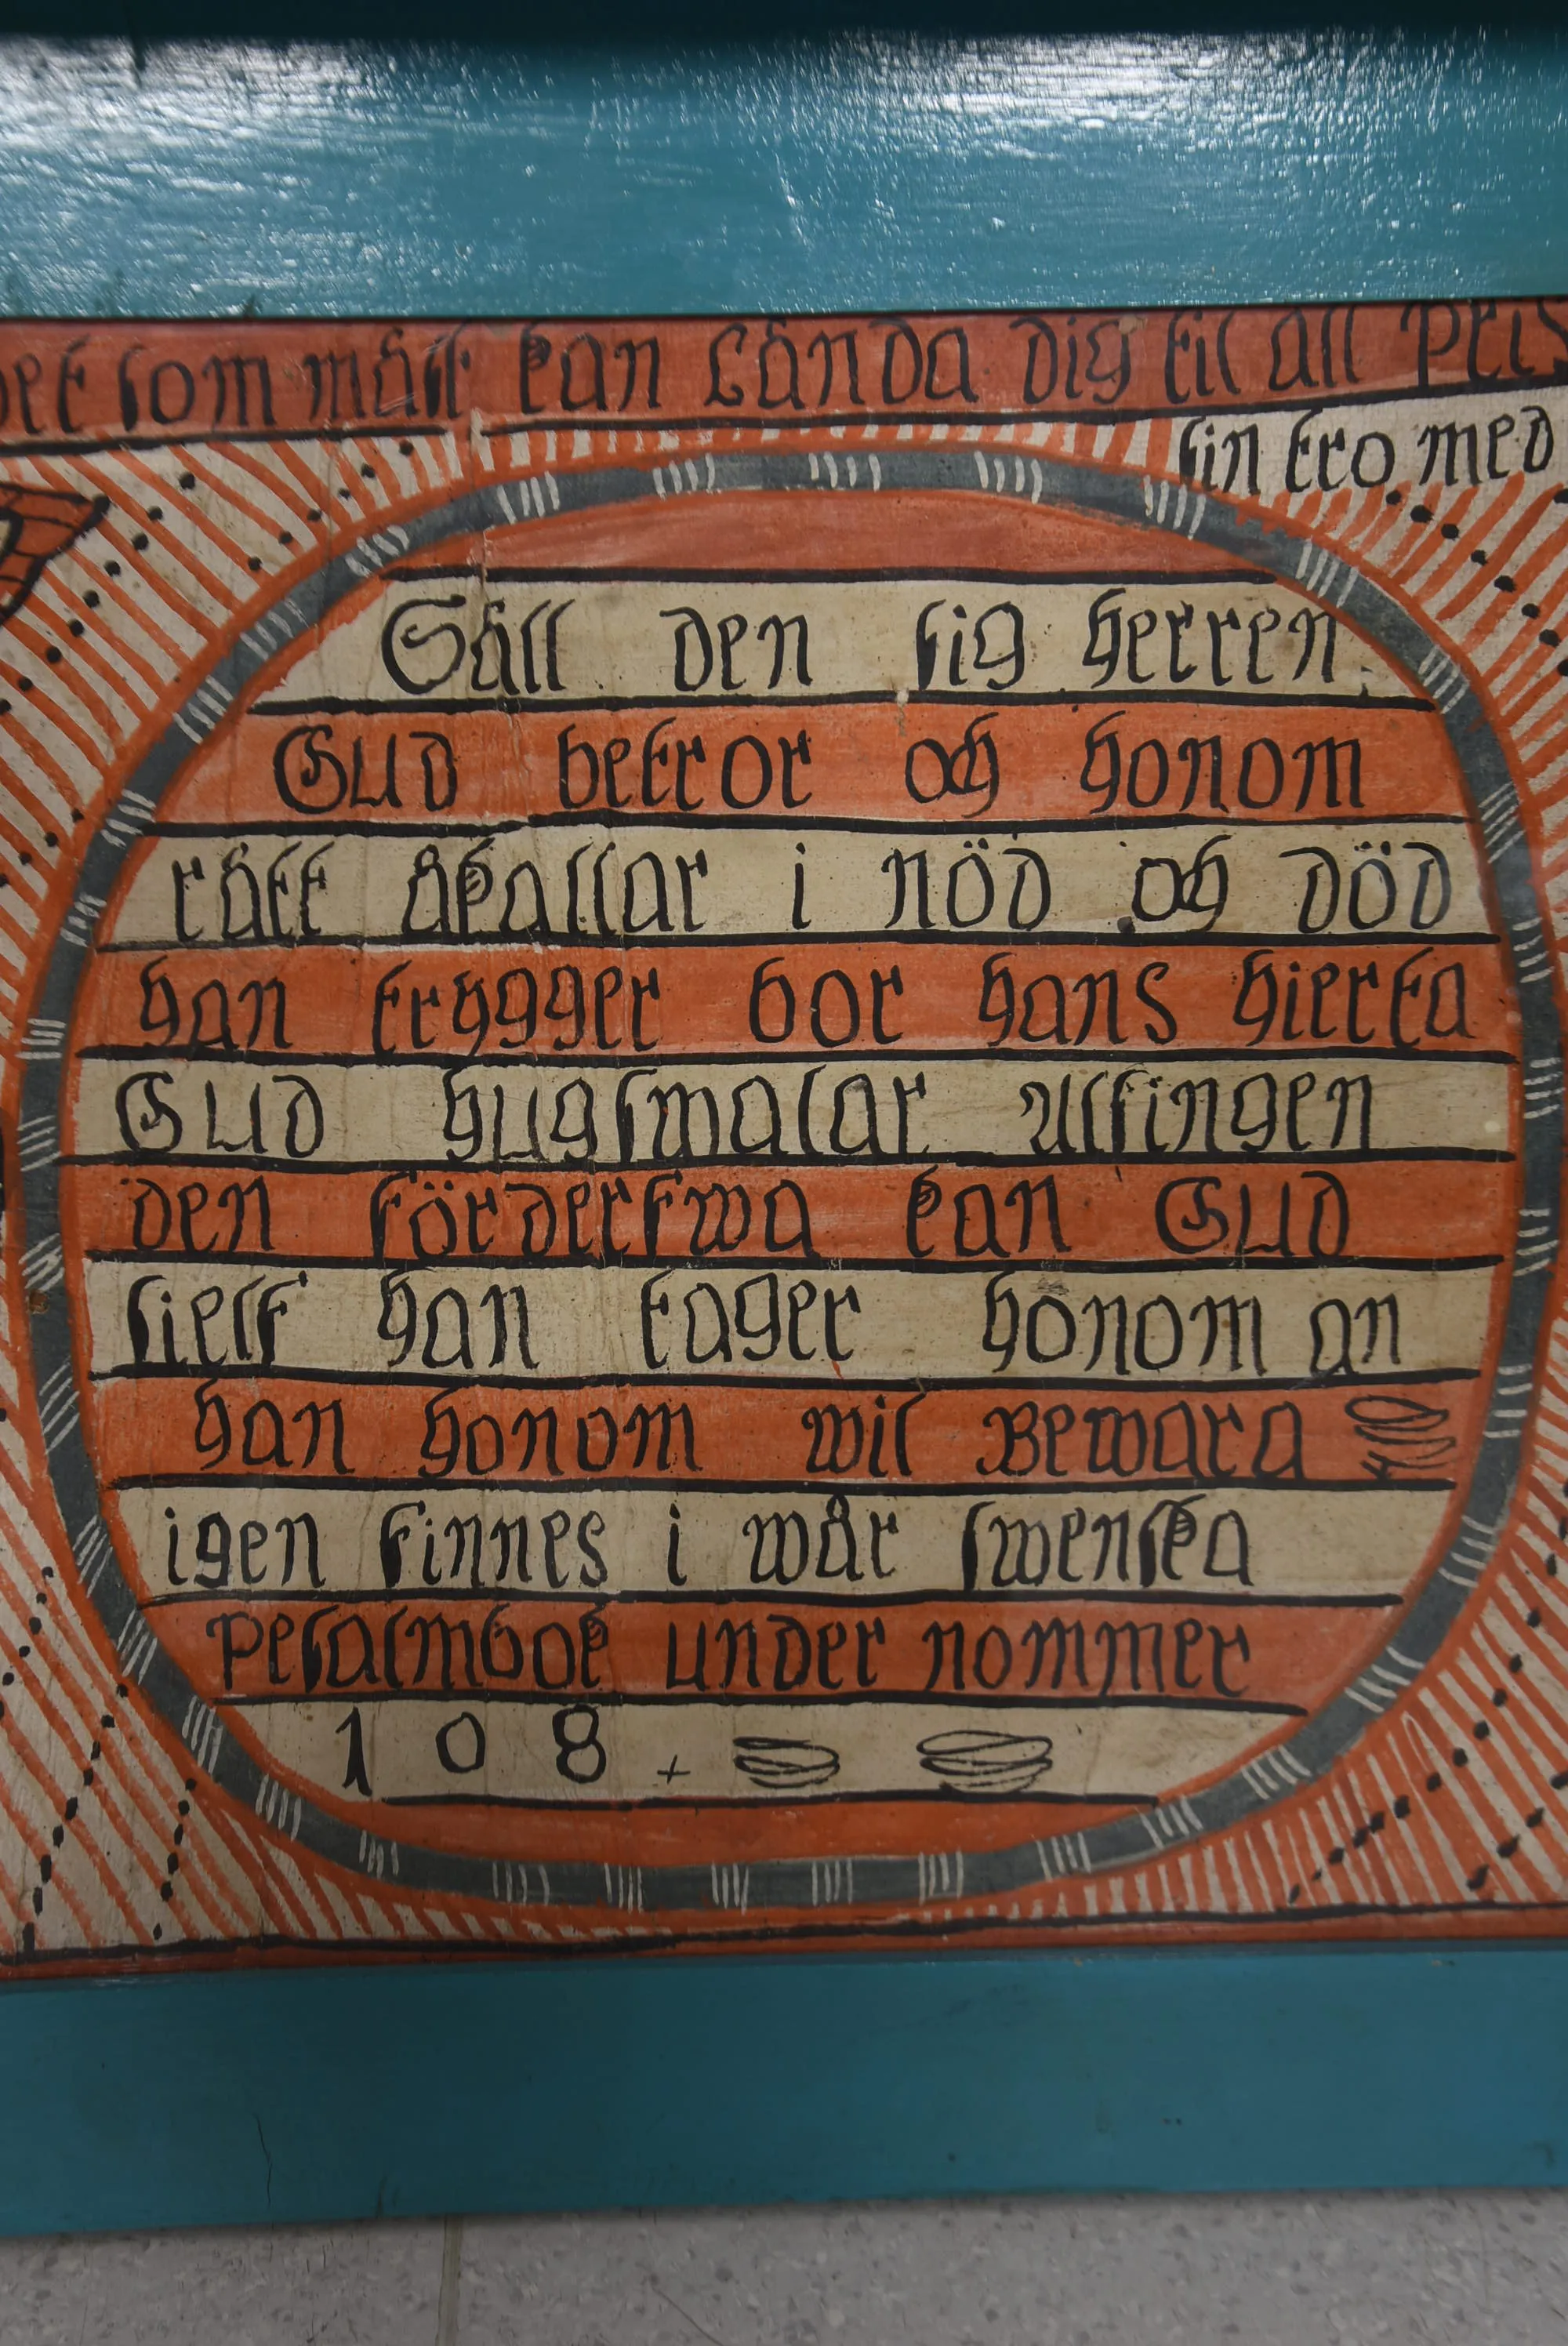 det som mäst kan Lända dig til all Pris
sin tro med
Säll den sig herren
Gud betror och honom
rätt åkallar i nöd och död
han trygger bor hans hierta
Gud hugswalar Alsingen
den förderfwa kan Gud
sielf han tager honom an
han honom wil Bewara
igen finnes i wår swenska
Pesalmbok under nommer
1 0 8 +